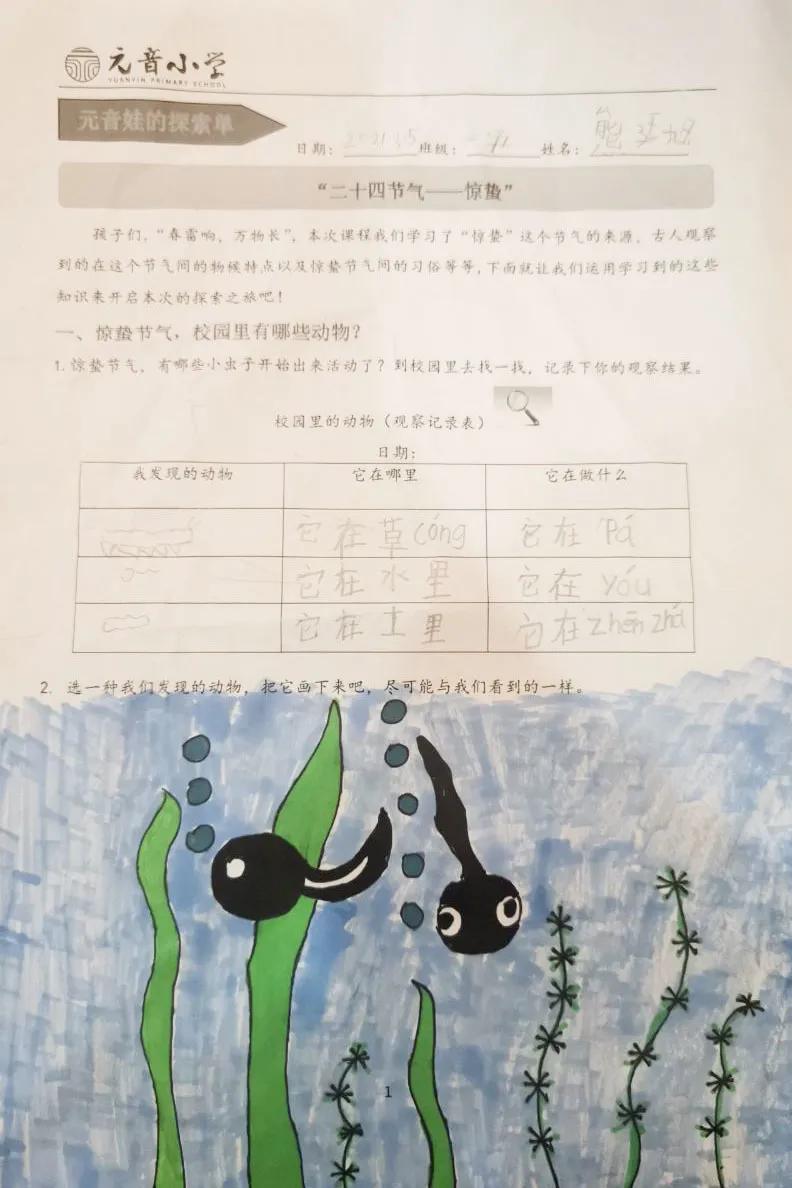 元音小学
YUANYIN PRIMARY SCHOOL
元音娃的探索单
日期： 2021.3.5 班级： 姓名： 熊
“二十四节气——惊蛰”
孩子们，“春雷响，万物长”，本次课程我们学习了“惊蛰”这个节气的来源，古人观察
到的在这个节气间的物候特点以及惊蛰节气间的习俗等等，下面就让我们运用学习到的这些
知识来开启本次的探索之旅吧！
一、惊蛰节气，校园里有哪些动物？
1. 惊蛰节气，有哪些小虫子开始出来活动了？到校园里去找一找，记录下你的观察结果。
校园里的动物（观察记录表）
日期：
我发现的动物 它在哪里 它在做什么
它在草cóng 它在 Pá
它在水里 它在 yóu
它在土里 它在zhēn zhá
2. 选一种我们发现的动物，把它画下来吧，尽可能与我们看到的一样。
1